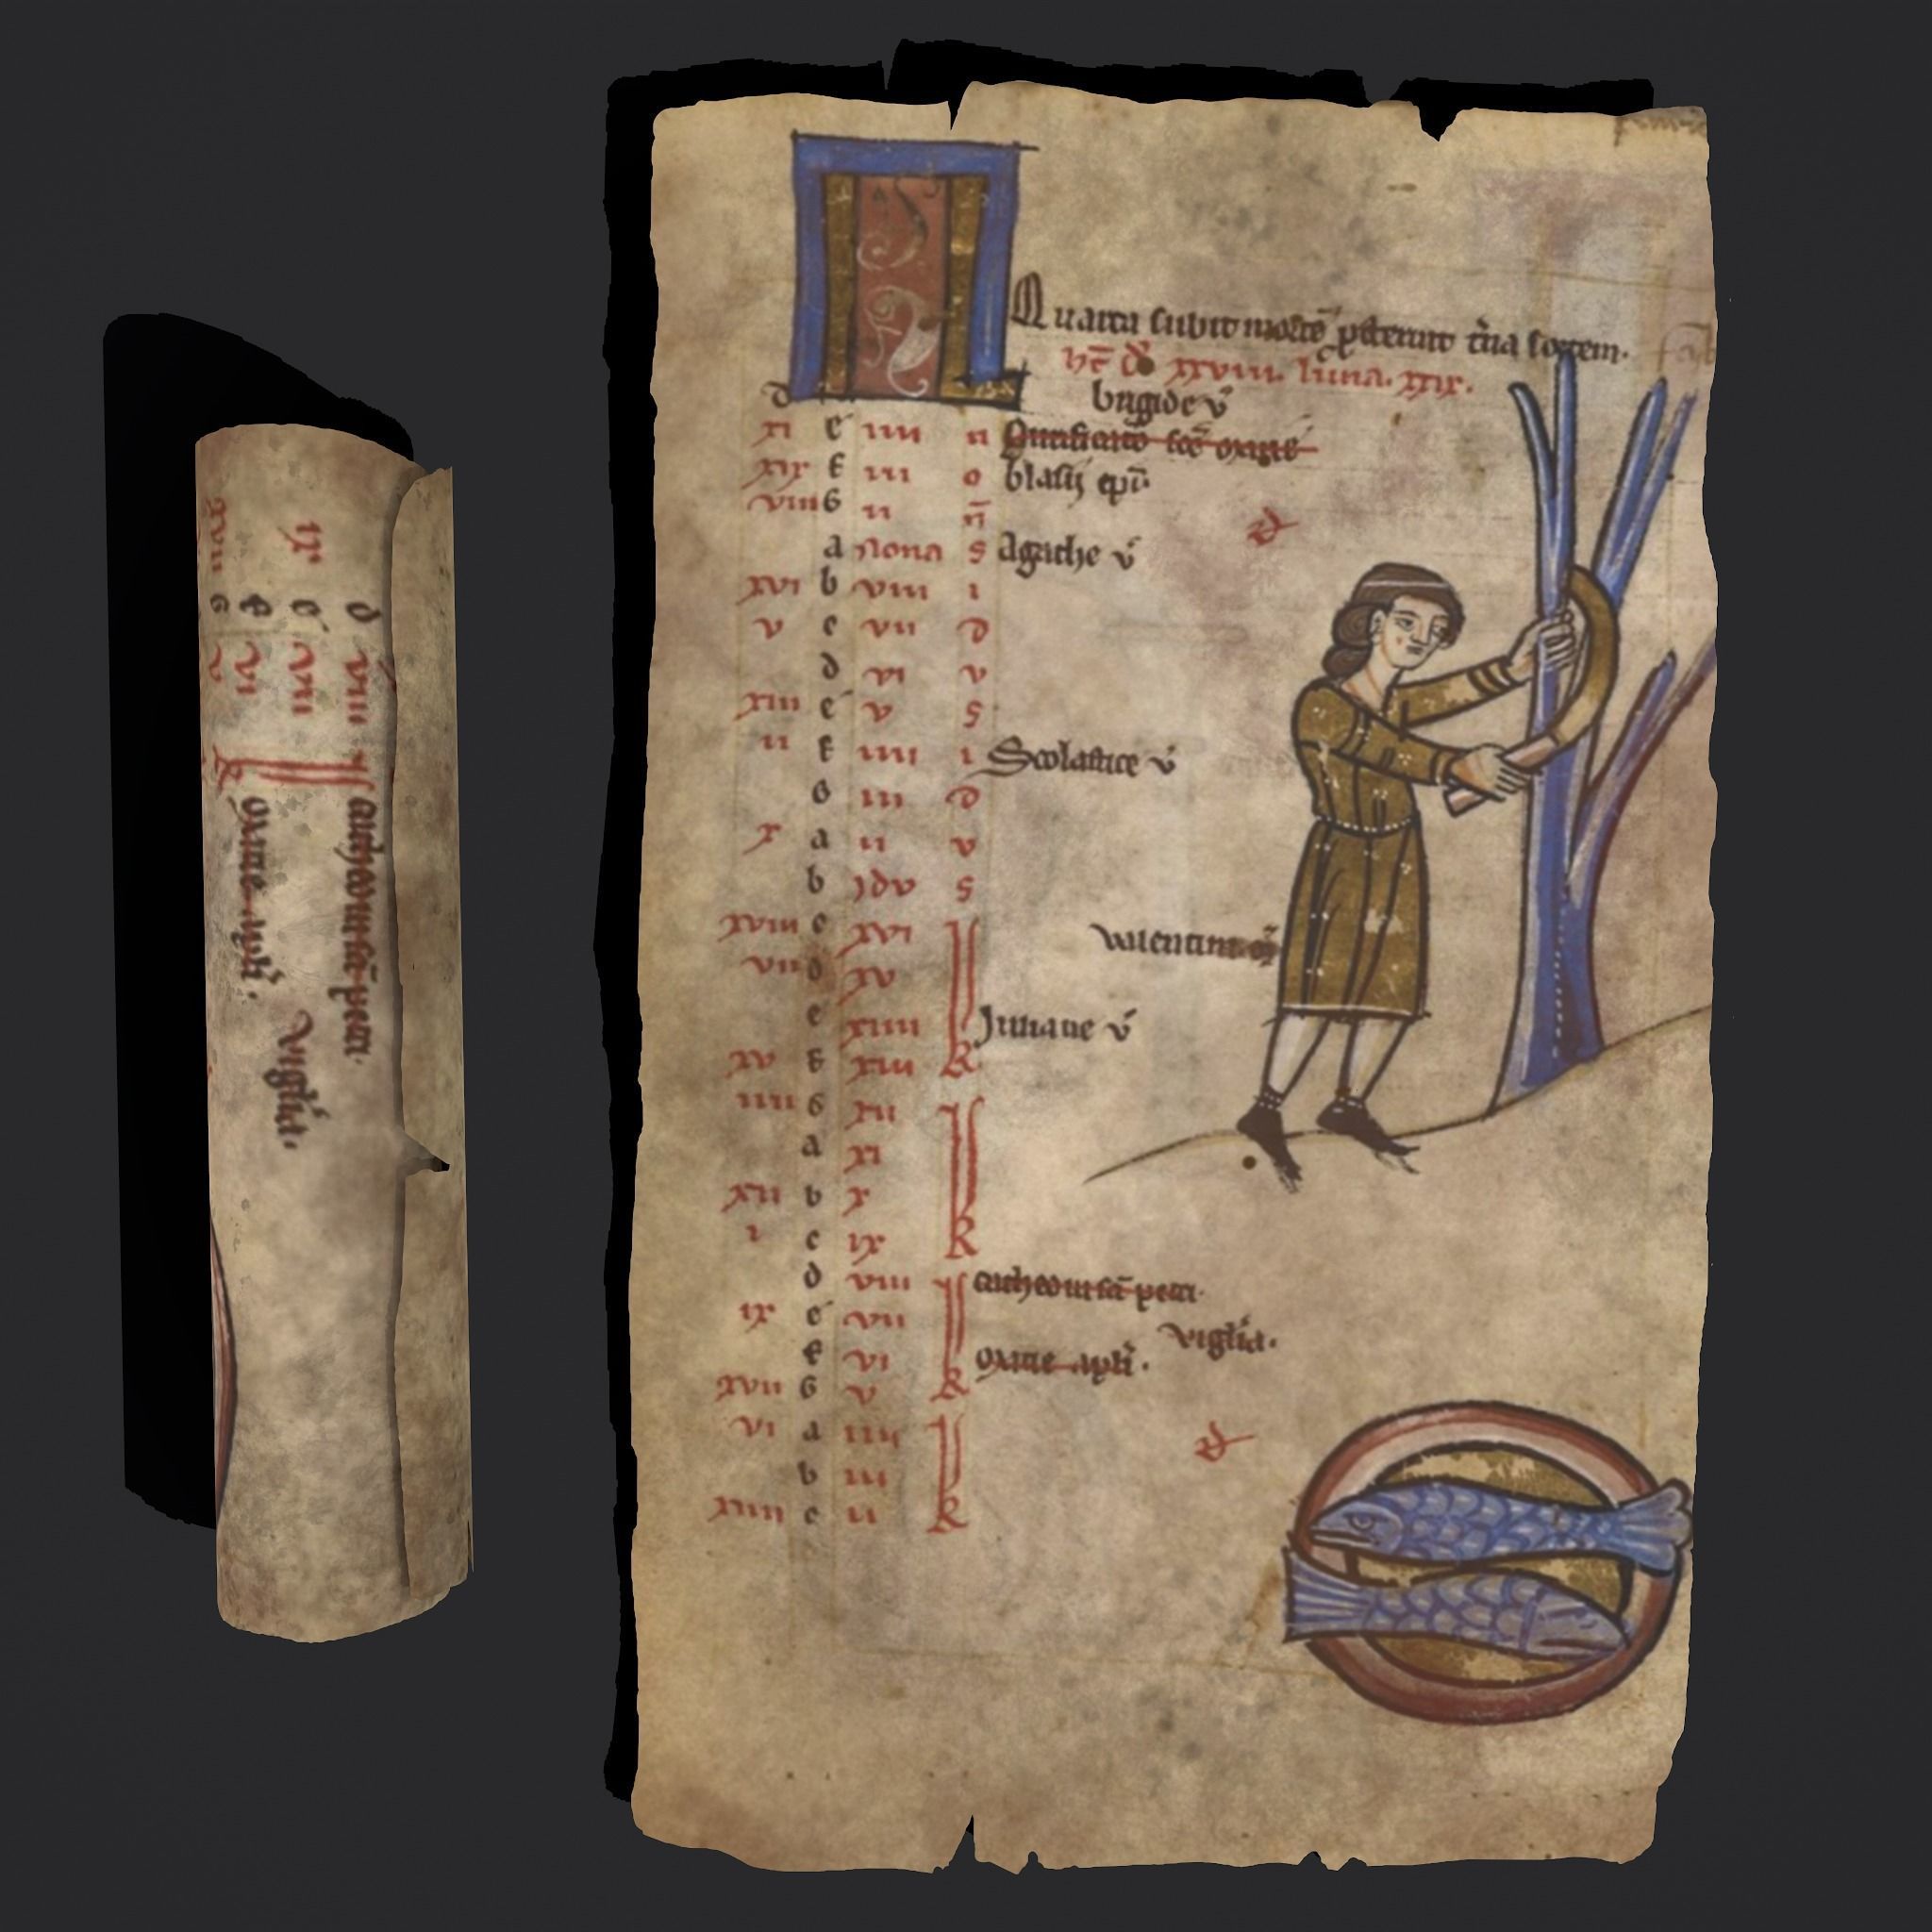 Quarta subit mortē t̄cia fortem.
d̄ xxviii. luna. xxix.
d brigide v̄
xi e iiii n
xix f iii o blasij ep̄i
viii G ii n̄
a Nona s Agathe v̄
xvi b viii i
v c vii D
d vi v
xiii e v S
ii f iiii i Scolastice v̄
G iii D
x a ii v
b Idv S
xviii c xvi valentini
vii d xv
e xiiii Juliane v̄
xv f xiii K
iiii G xii
a xi
xii b x
i c ix K
d viii petri.
ix e vii vigilia.
f vi apli.
xvii G v K
vi a iiii
b iii
xiiii c ii K
d viii petri.
ix e vii Vigilia.
f vi apli.
xvii G v K